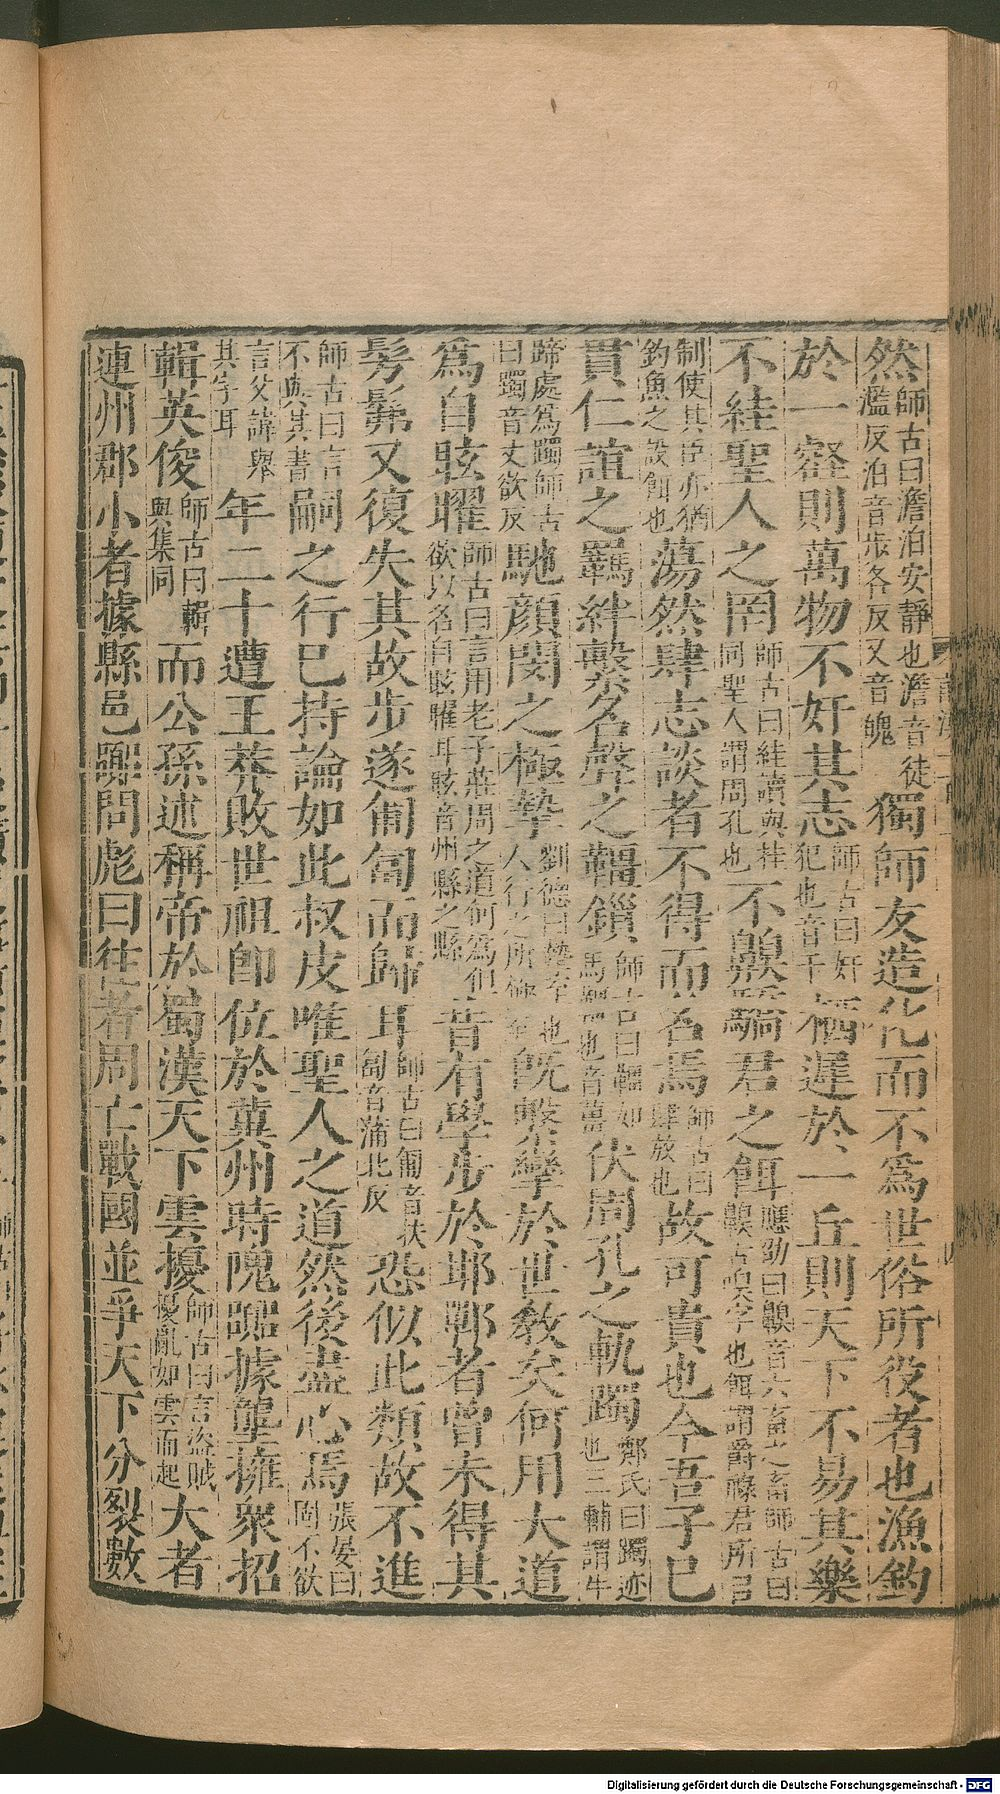 然師古曰澹泊安靜也澹音徒濫反泊音步各反又音魄獨師友造化而不為世俗所役者也漁釣
於一壑則萬物不奸其志師古曰奸犯也音干栖遲於一丘則天下不易其樂
不絓聖人之罔師古曰絓讀與挂同聖人謂周孔也不齅驕君之餌應劭曰齅音六畜之畜師古曰齅古嗅字也餌謂爵祿君所
制使其臣亦猶釣魚之設餌也蕩然肆志談者不得而名焉師古曰肆放也故可貴也今吾子已
貫仁誼之羈絆繫名聲之韁鎖師古曰韁如馬韁也音薑伏周孔之軌躅鄭氏曰躅迹也三輔謂牛
蹄處為躅師古曰躅音丈欲反馳顏閔之極摯劉德曰摯至也人行之所極至既繫攣於世教矣何用大道
為自眩曜師古曰言用老子莊周之道何為但欲以名自眩曜耳眩音州縣之縣昔有學步於邯鄲者曾未得其
髣髴又復失其故步遂匍匐而歸耳師古曰匍音扶匐音蒲北反恐似此類故不進
師古曰言不與其書嗣之行已持論如此叔皮唯聖人之道然後盡心焉張晏曰固不欲
言父諱舉其字耳年二十遭王莽敗世祖即位於冀州時隗囂據壟擁衆招
輯英俊師古曰輯與集同而公孫述稱帝於蜀漢天下雲擾師古曰言盜賊擾亂如雲而起大者
連州郡小者據縣邑囂問彪曰往者周亡戰國並爭天下分裂數
Digitalisierung gefördert durch die Deutsche Forschungsgemeinschaft - DFG